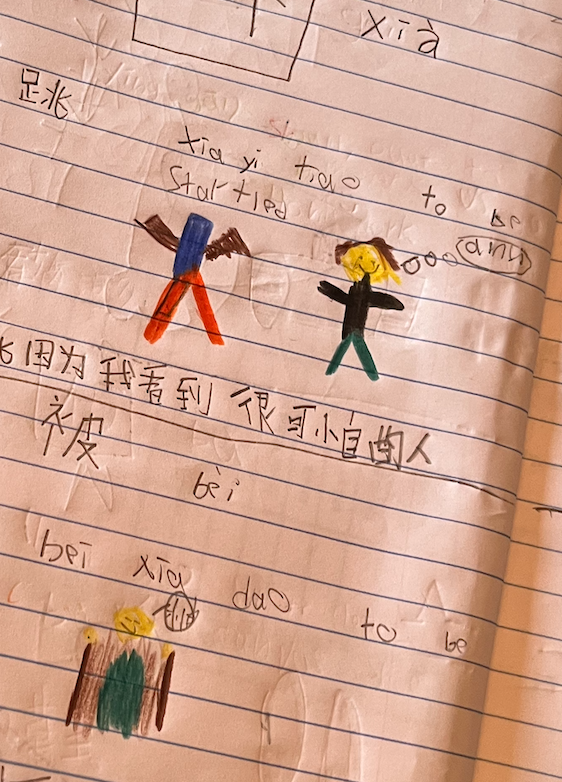 xià
跳
xia yi tiao to be
startled
因为我看到很可怕的人
被
bèi
bei xia dao to be